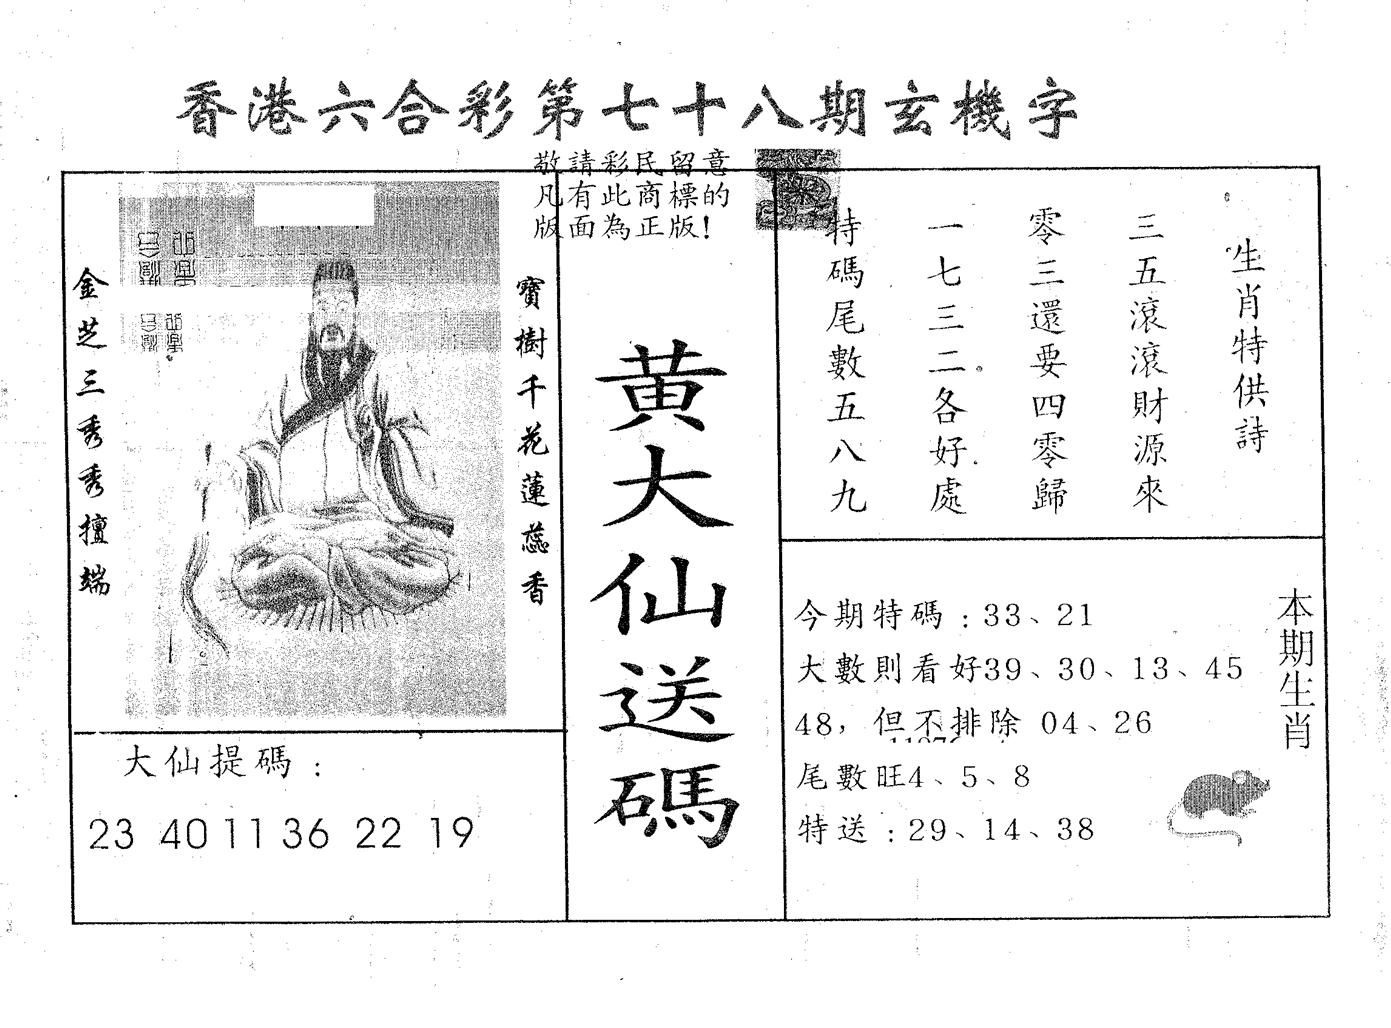 香港六合彩第七十八期玄機字
敬請彩民留意
凡有此商標的
版面為正版!
寶樹千花蓮蕊香
金芝三秀秀擅端
大仙提碼:
23 40 11 36 22 19
黄大仙送碼
生肖特供詩
三五滾滾財源來
零三還要四零歸
一七三二各好處
特碼尾數五八九
本期生肖
今期特碼:33、21
大數則看好39、30、13、45
48,但不排除 04、26
尾數旺4、5、8
特送:29、14、38